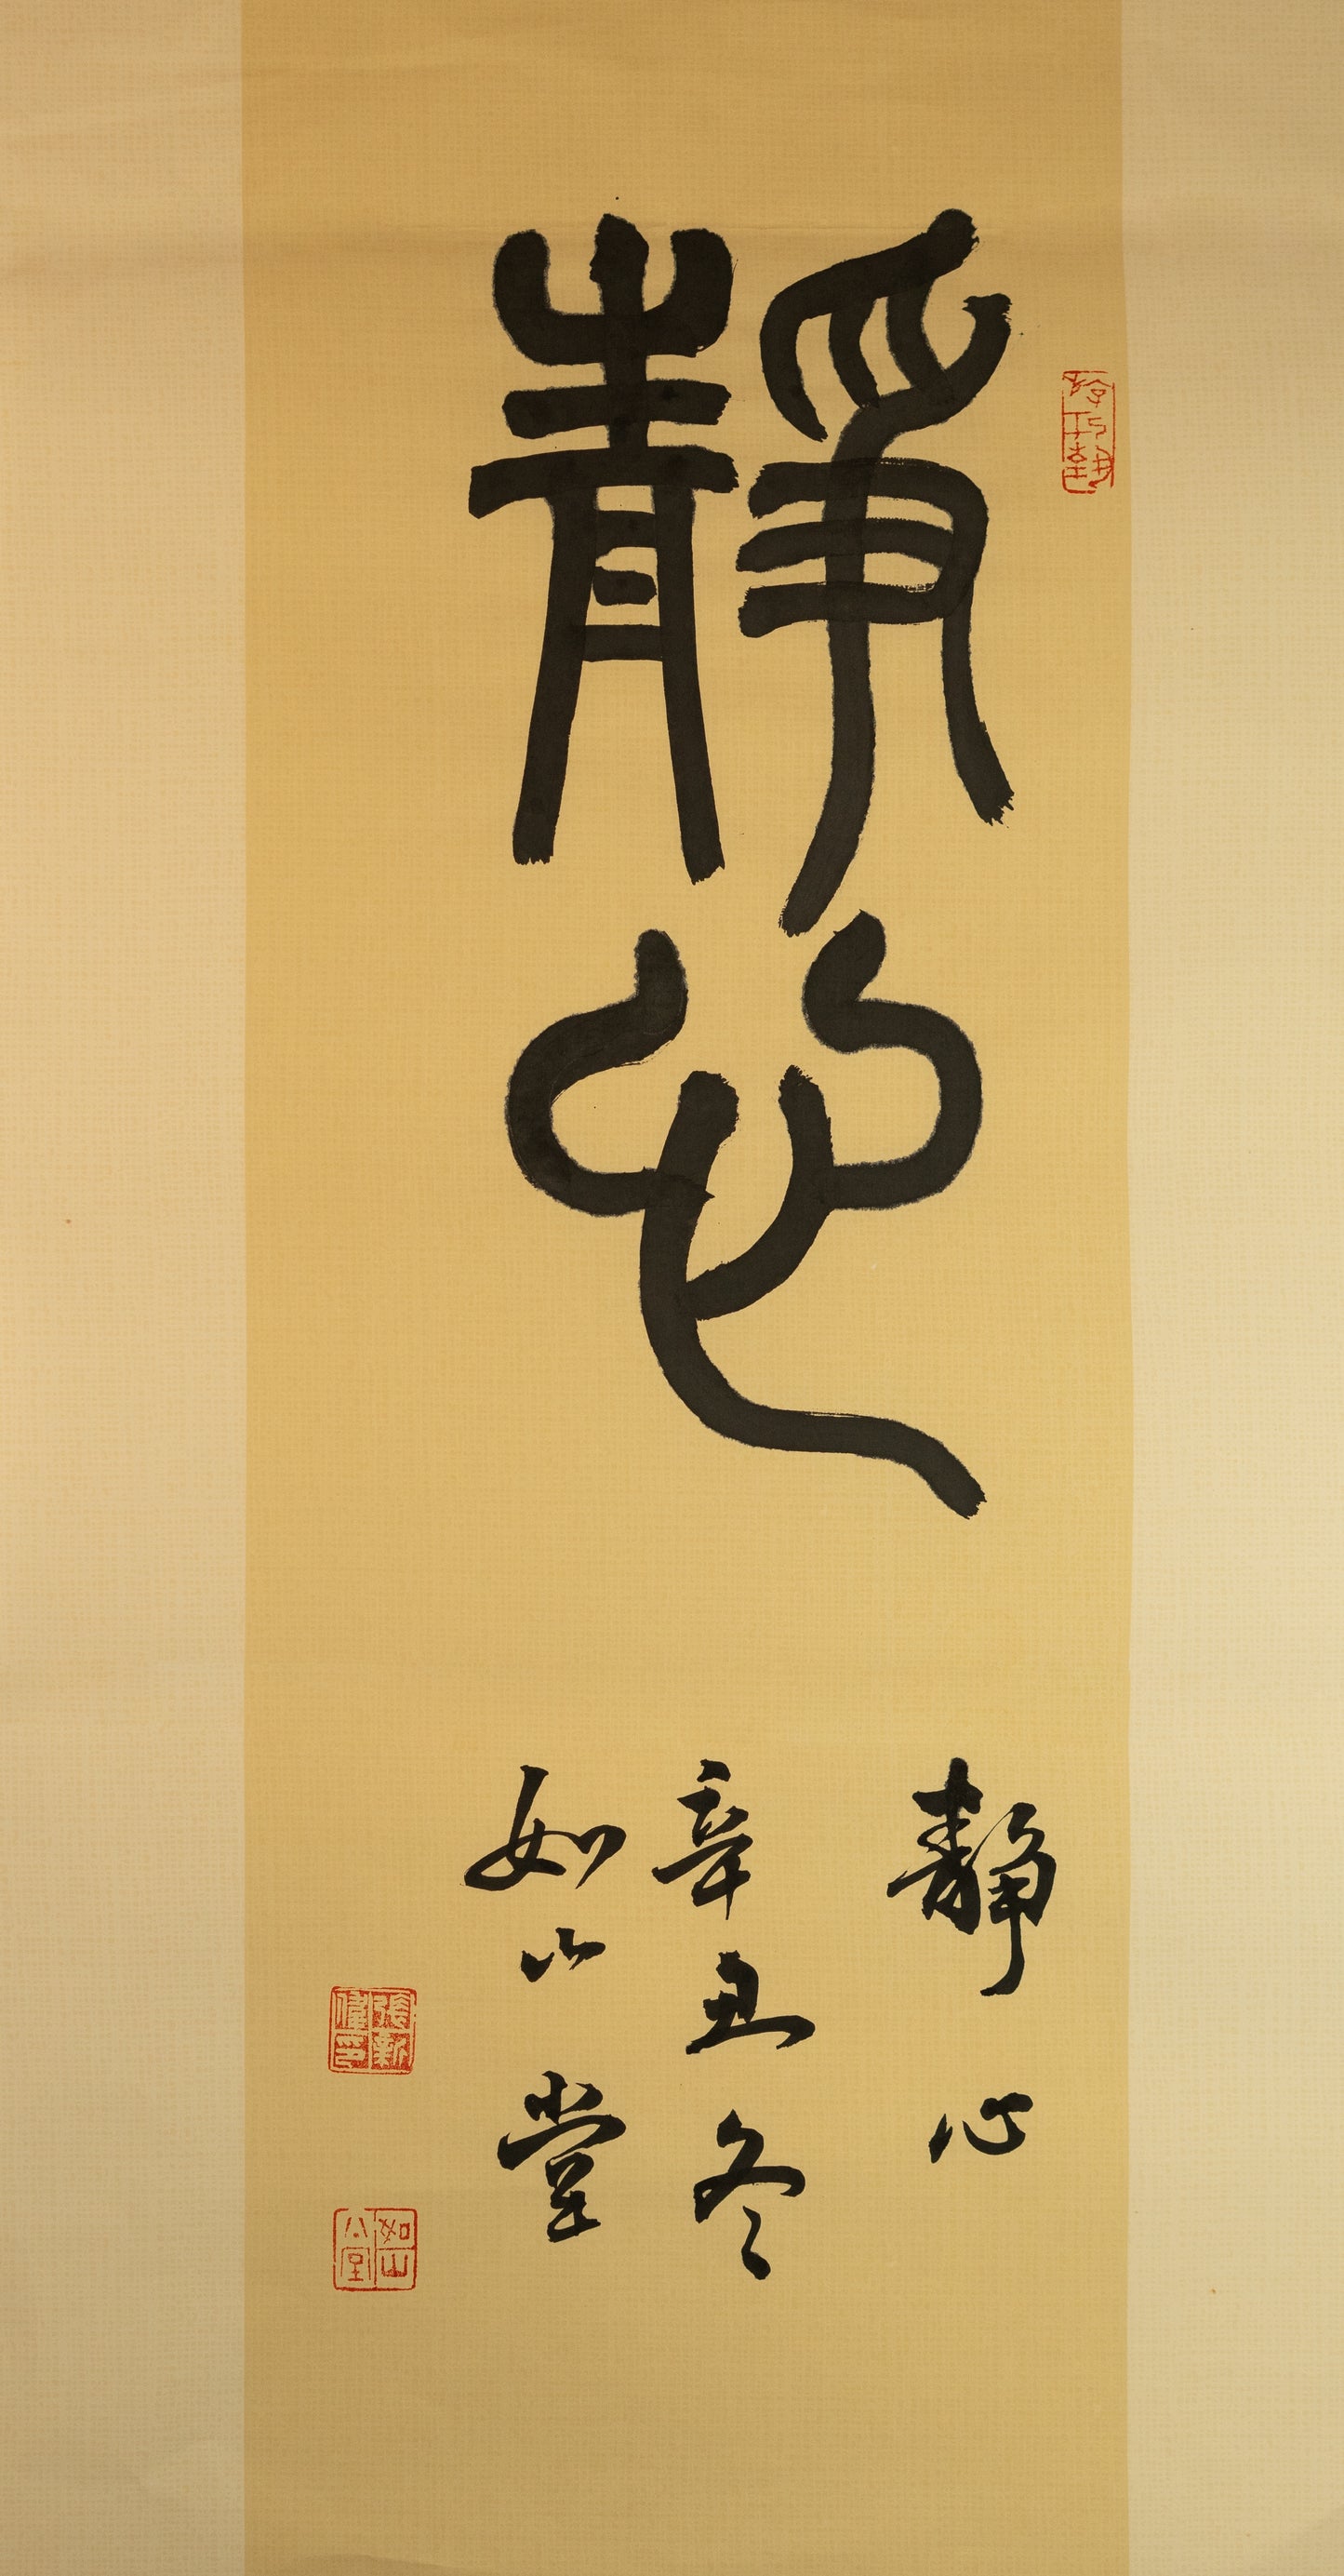 靜心
靜心
辛丑冬
如山堂
張新
偉印
如山
堂